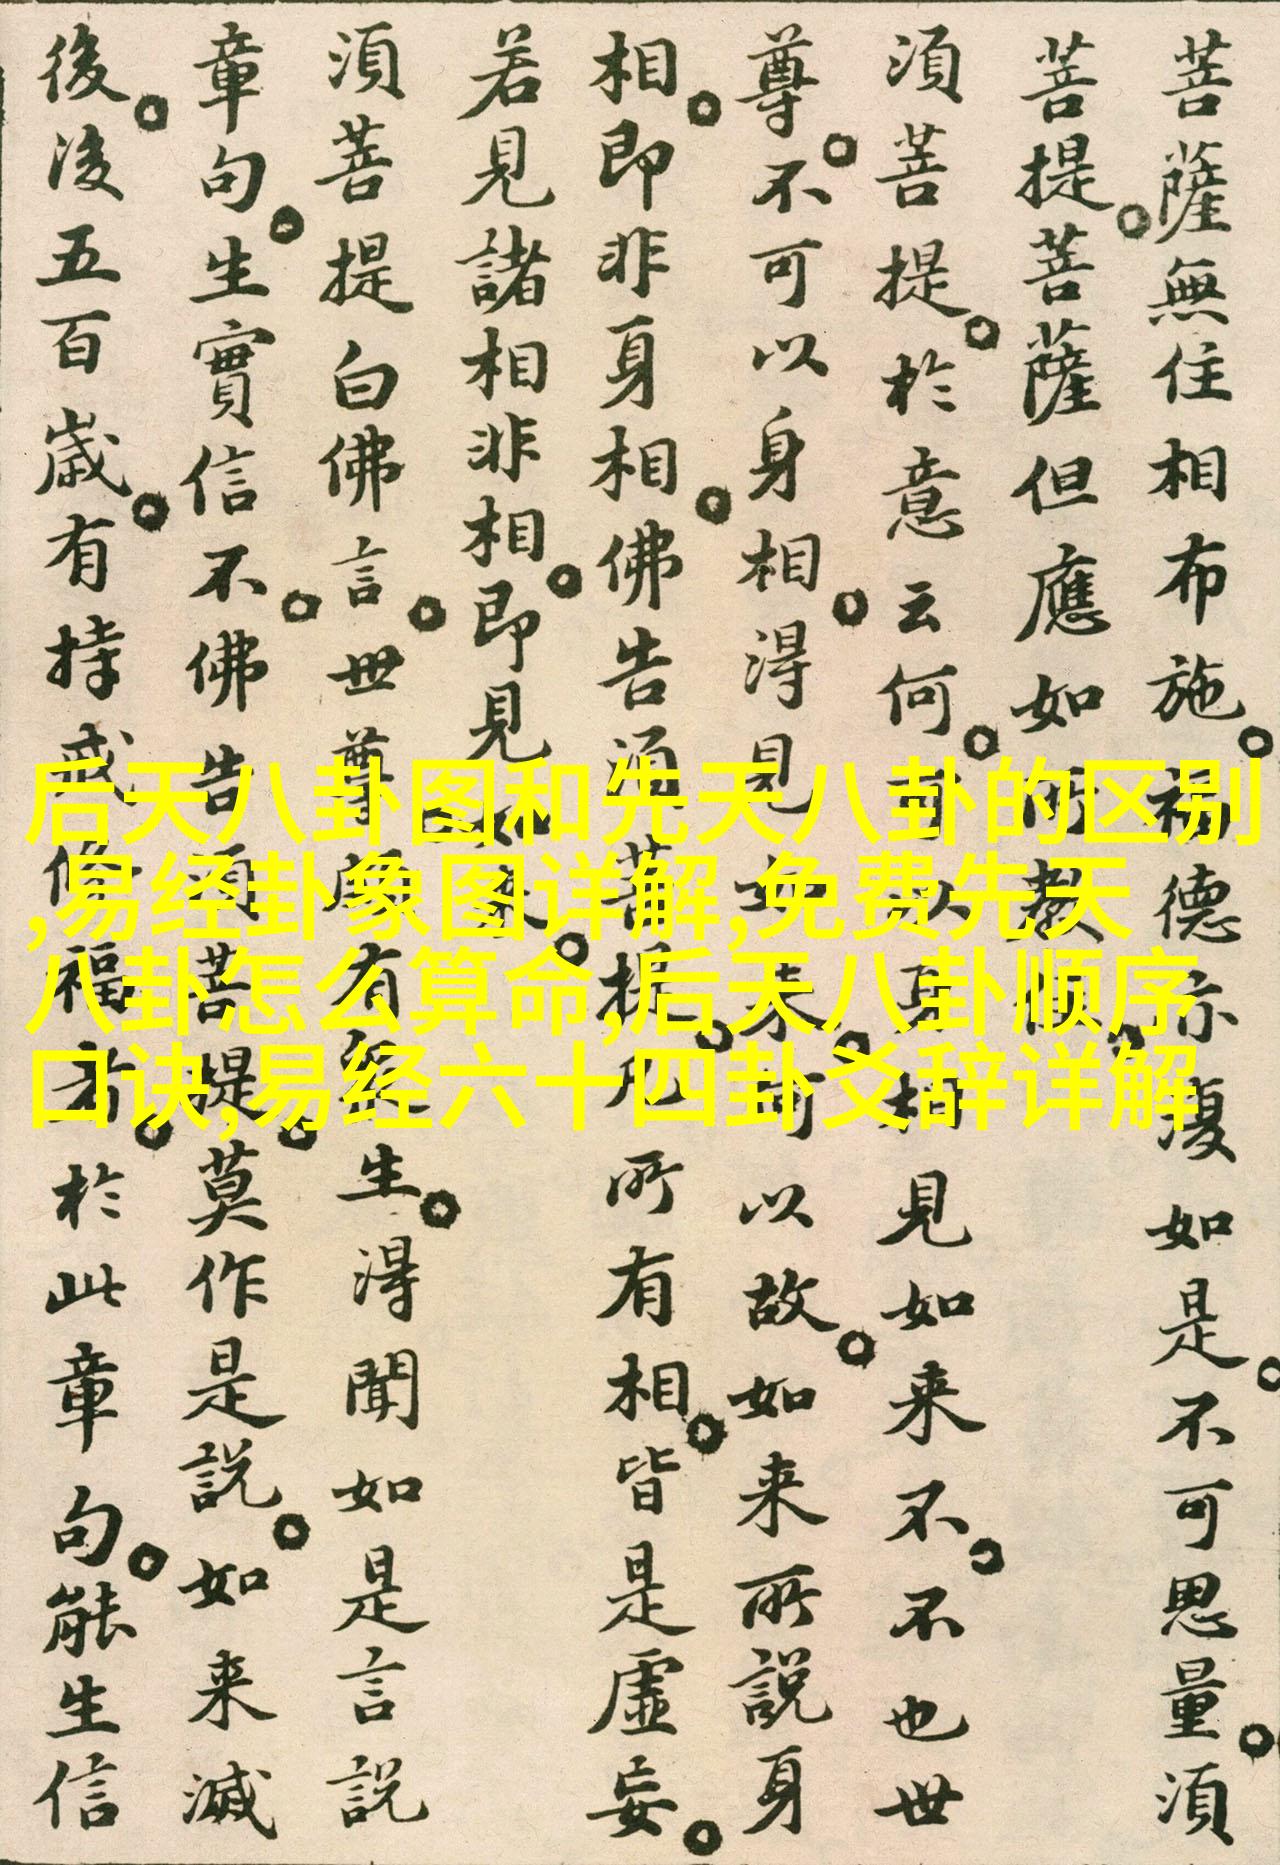 菩薩無住相布施。福德亦復如是。不可思量。須
菩提。菩薩但應如所教住。
須菩提。於意云何。可以身相見如来不。不也世
尊。不可以身相。得見如来。何以故。如来所說身
相。即非身相。佛告須菩提。凡所有相。皆是虛妄。
若見諸相非相。即見如来。
須菩提白佛言。世尊頗有生。得聞如是言說
章句。生實信不。佛告須菩提。莫作是說。如来滅
後。後五百歲。有持戒修福者。於此章句。能生信
后天八卦图和先天八卦的区别
,易经卦象图详解,免费先天
八卦怎么算命,后天八卦顺序
口诀,易经六十四卦爻辞详解